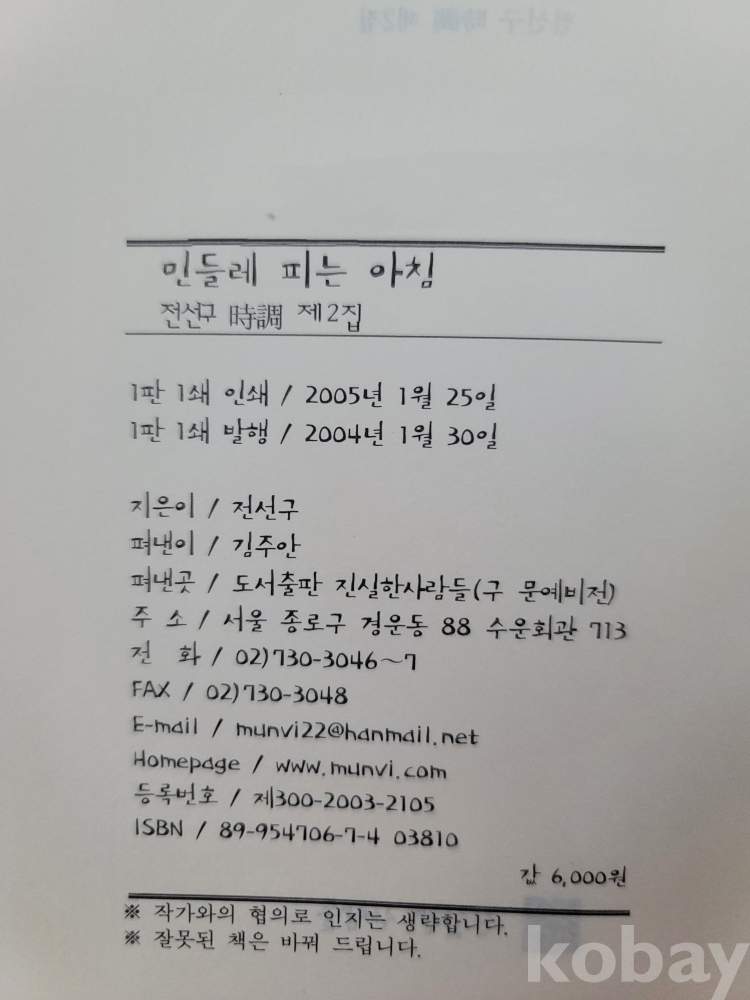 민들레 피는 아침
전선구 時調 제2집
1판 1쇄 인쇄 / 2005년 1월 25일
1판 1쇄 발행 / 2004년 1월 30일
지은이 / 전선구
펴낸이 / 김주안
펴낸곳 / 도서출판 진실한사람들(구 문예비전)
주 소 / 서울 종로구 경운동 88 수운회관 713
전 화 / 02)730-3046~7
FAX / 02)730-3048
E-mail / munvi22@hanmail.net
Homepage / www.munvi.com
등록번호 / 제300-2003-2105
ISBN / 89-954706-7-4 03810
값 6,000원
※ 작가와의 협의로 인지는 생략합니다.
※ 잘못된 책은 바꿔 드립니다.
kobay